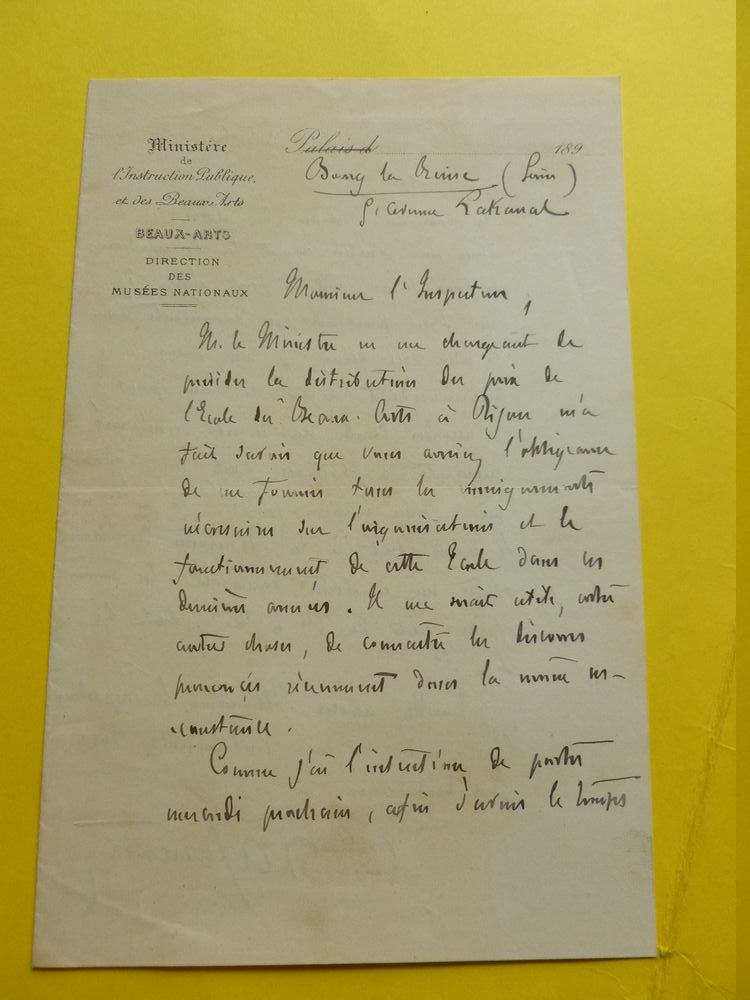 Ministère
de
l'Instruction Publique,
et des Beaux-Arts
BEAUX-ARTS
DIRECTION
DES
MUSÉES NATIONAUX
Palais d 189
Bourg la Reine (Seine)
avenue Lakanal
Monsieur l'Inspecteur,
M. le Ministre en me chargeant de
présider la distribution des prix de
l'Ecole des Beaux-Arts à Dijon m'a
fait savoir que vous auriez l'obligeance
de me fournir tous les renseignements
nécessaires sur l'organisation et le
fonctionnement de cette Ecole dans ces
dernières années. Il me serait utile, entre
autres choses, de connaître les discours
prononcés récemment dans la même cir-
constance.
Comme j'ai l'intention de partir
mercredi prochain, afin d'avoir le temps